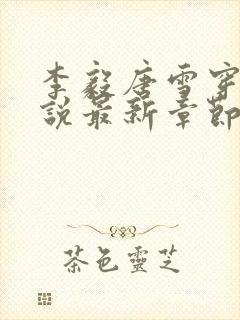 李毅唐雪穿
說最新章節
茶色靈芝